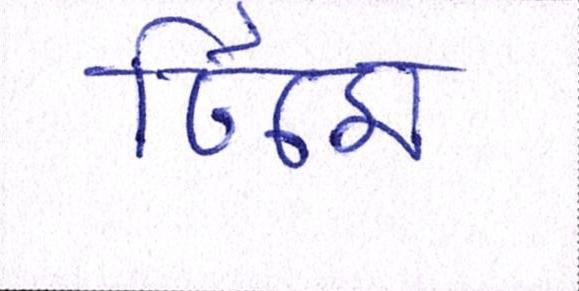 টিমে